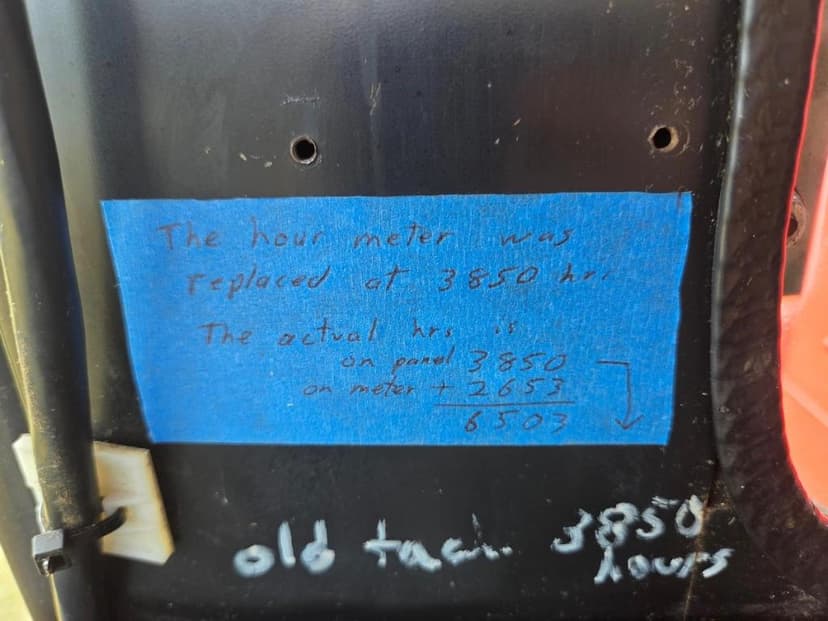 The hour meter was
replaced at 3850 hr.
The actual hrs is
on panel 3850
on meter + 2653
6503
old tach. 3850
hours